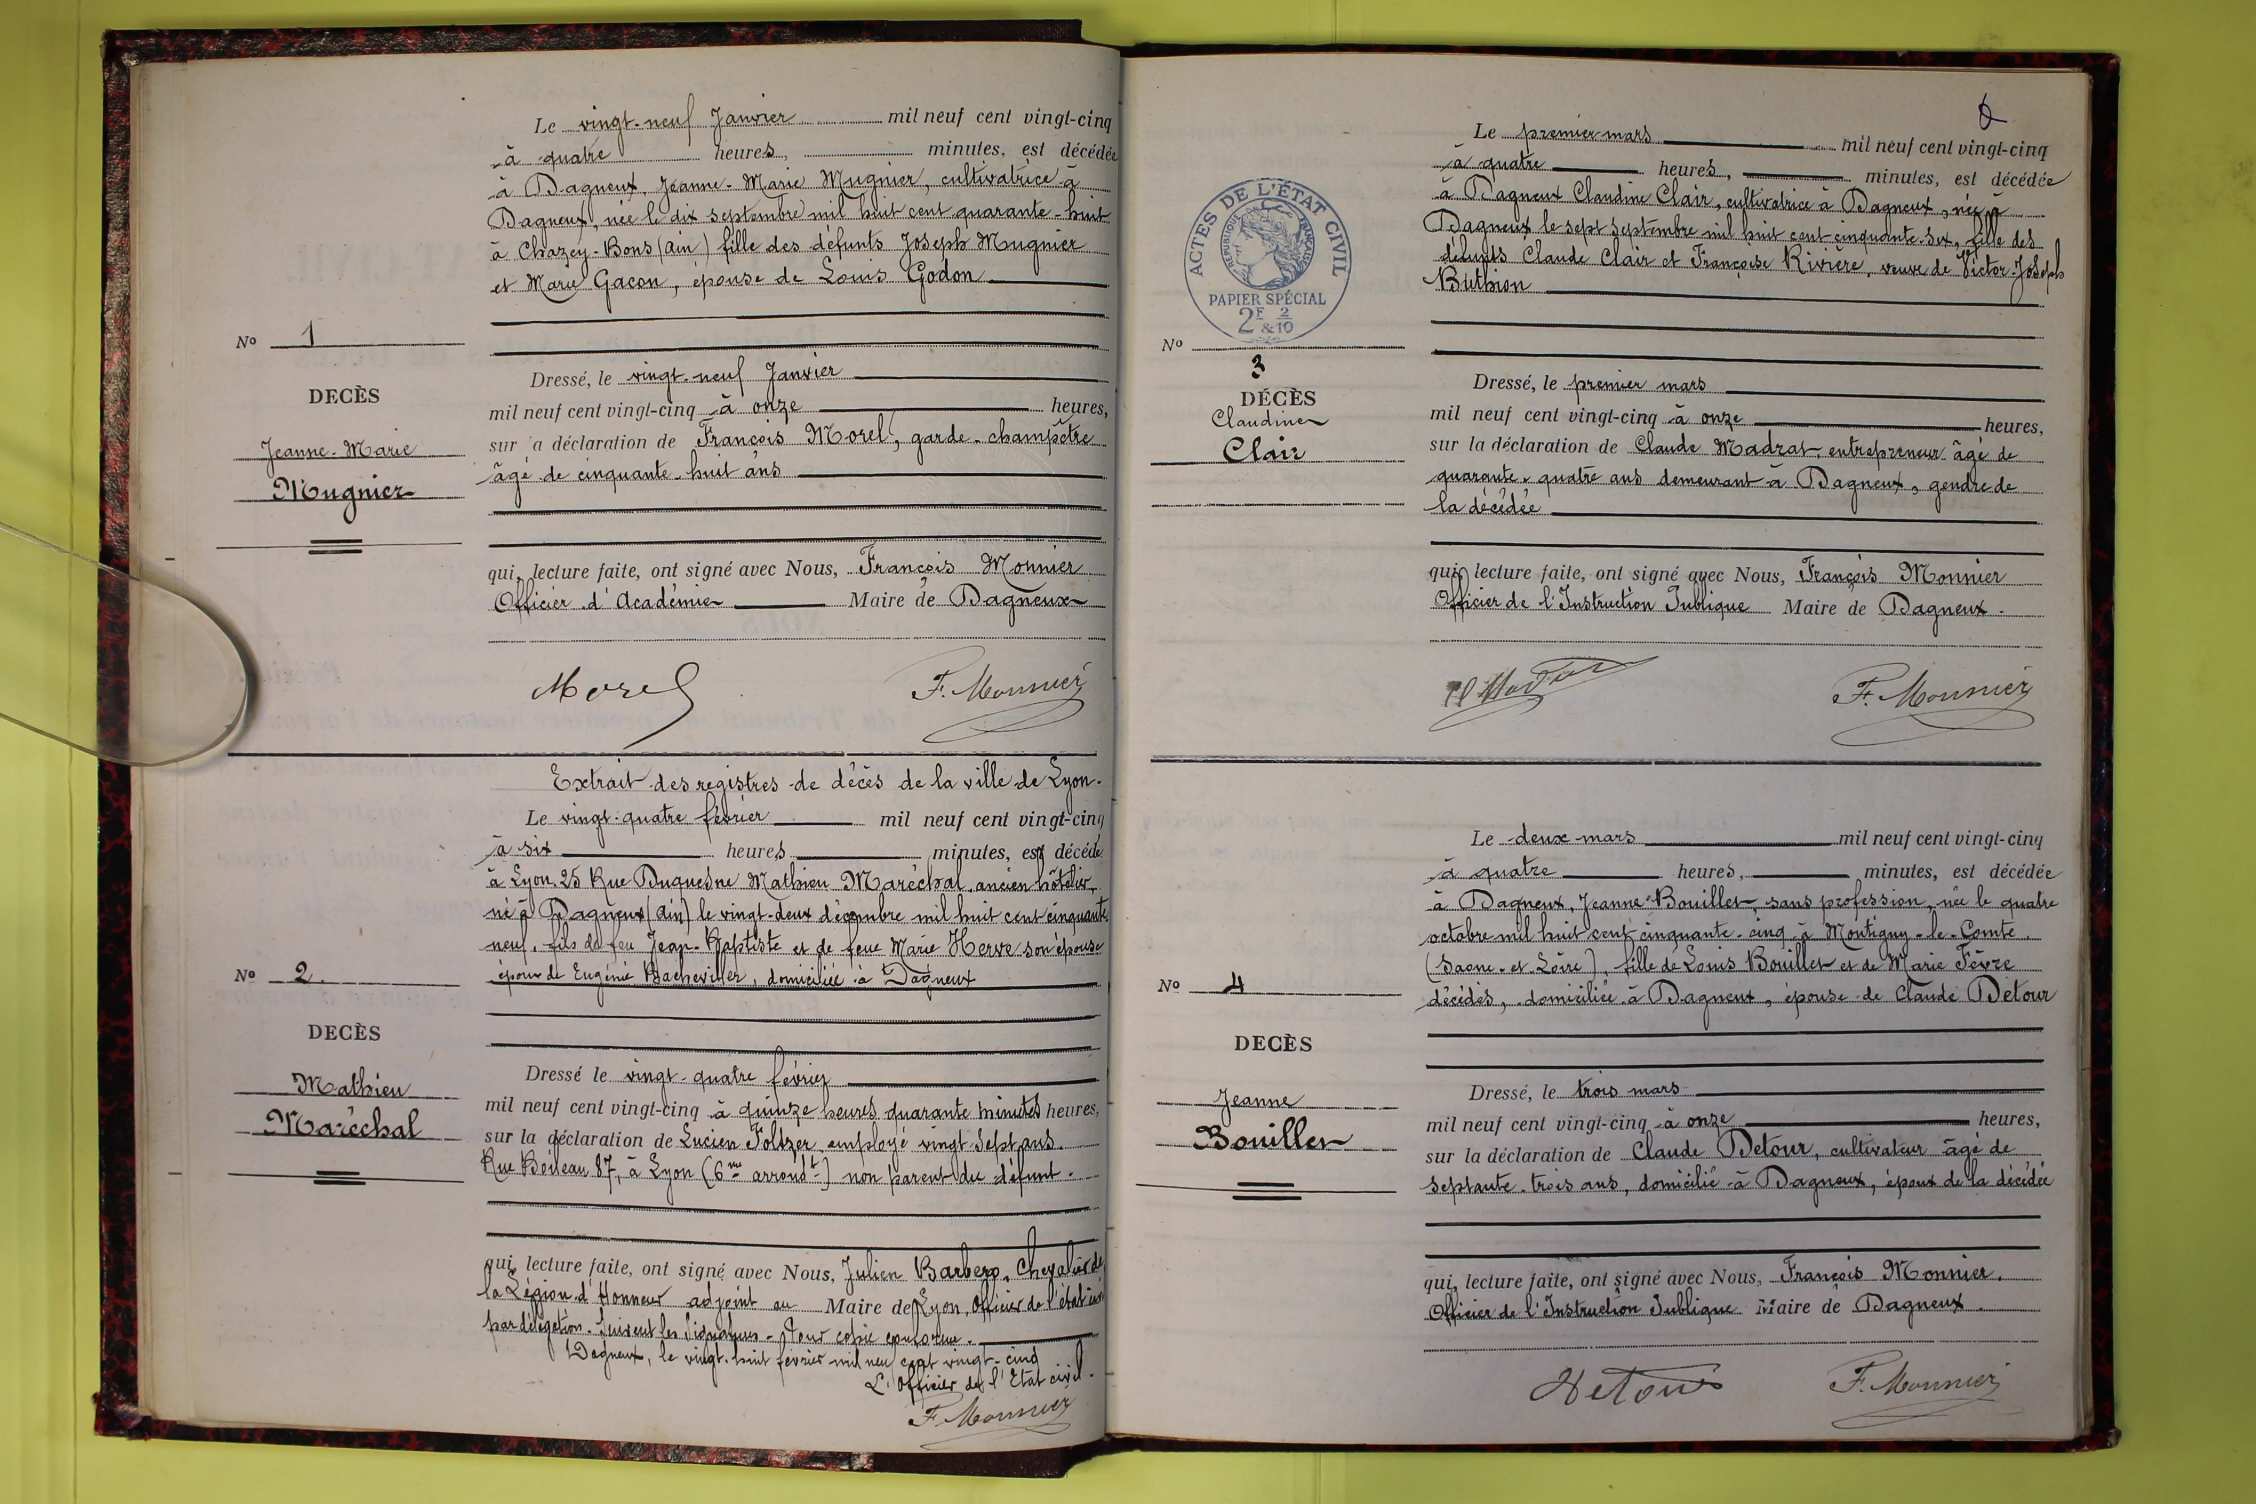 Le vingt-neuf Janvier mil neuf cent vingt-cinq
à quatre heures, minutes, est décédée
à Dagneux, Jeanne-Marie Mugnier, cultivatrice à
Dagneux, née le dix septembre mil huit cent quarante-huit
à Chazey-Bons (ain) fille des défunts Joseph Mugnier
et Marie Gacon, épouse de Louis Godon
No 1
DECÈS
Jeanne-Marie
Mugnier
Dressé, le vingt-neuf Janvier
mil neuf cent vingt-cinq à onze heures,
sur la déclaration de François Morel, garde-champêtre
âgé de cinquante-huit ans
qui, lecture faite, ont signé avec Nous, François Monnier
Officier d'Académie Maire de Dagneux
Morel F. Monnier
Extrait des registres de décès de la ville de Lyon.
Le vingt-quatre février mil neuf cent vingt-cinq
à six heures minutes, est décédé
à Lyon, 25 Rue Duquesne Mathieu Maréchal, ancien hôtelier,
né à Dagneux (Ain) le vingt-deux décembre mil huit cent cinquante
neuf, fils de feu Jean-Baptiste et de feue Marie Herve son épouse
époux de Eugénie Bacheviller, domiciliée à Dagneux
No 2.
DECÈS
Mathieu
Maréchal
Dressé le vingt-quatre février
mil neuf cent vingt-cinq à quinze heures quarante minutes heures,
sur la déclaration de Lucien Foltzer, employé vingt sept ans
Rue Boileau 87, à Lyon (6me arrondt) non parent du défunt.
qui, lecture faite, ont signé avec Nous, Julien Barbero, Chevalier de
la Légion d'Honneur adjoint au Maire de Lyon, Officier de l'état civil
par délégation. Suivent les Signatures - Pour copie conforme.
Dagneux, le vingt-huit février mil neuf cent vingt-cinq
L'Officier de l'Etat civil.
F. Monnier
Le premier mars mil neuf cent vingt-cinq
à quatre heures, minutes, est décédée
à Dagneux Claudine Clair, cultivatrice à Dagneux, née à
Dagneux le sept septembre mil huit cent cinquante-six, fille des
défunts Claude Clair et Françoise Rivière, veuve de Victor-Joseph
Buthion
ACTES DE L'ÉTAT CIVIL
RÉPUBLIQUE FRANÇAISE
PAPIER SPÉCIAL
2F & 2/10
No
3
DÉCÈS
Claudine
Clair
Dressé, le premier mars
mil neuf cent vingt-cinq à onze heures,
sur la déclaration de Claude Madrat, entrepreneur âgé de
quarante-quatre ans demeurant à Dagneux, gendre de
la décédée
qui, lecture faite, ont signé avec Nous, François Monnier
Officier de l'Instruction Publique Maire de Dagneux.
F. Monnier
Le deux mars mil neuf cent vingt-cinq
à quatre heures, minutes, est décédée
à Dagneux, Jeanne Bouillet, sans profession, née le quatre
octobre mil huit cent cinquante-cinq à Montigny-le-Comte
(Saone-et-Loire), fille de Louis Bouillet et de Marie Fèvre
décédés, domiciliée à Dagneux, épouse de Claude Detour
No 4
DECÈS
Jeanne
Bouillet
Dressé, le trois mars
mil neuf cent vingt-cinq à onze heures,
sur la déclaration de Claude Detour, cultivateur âgé de
septante-trois ans, domicilié à Dagneux, époux de la décédée
qui, lecture faite, ont signé avec Nous, François Monnier,
Officier de l'Instruction Publique Maire de Dagneux.
Detour F. Monnier